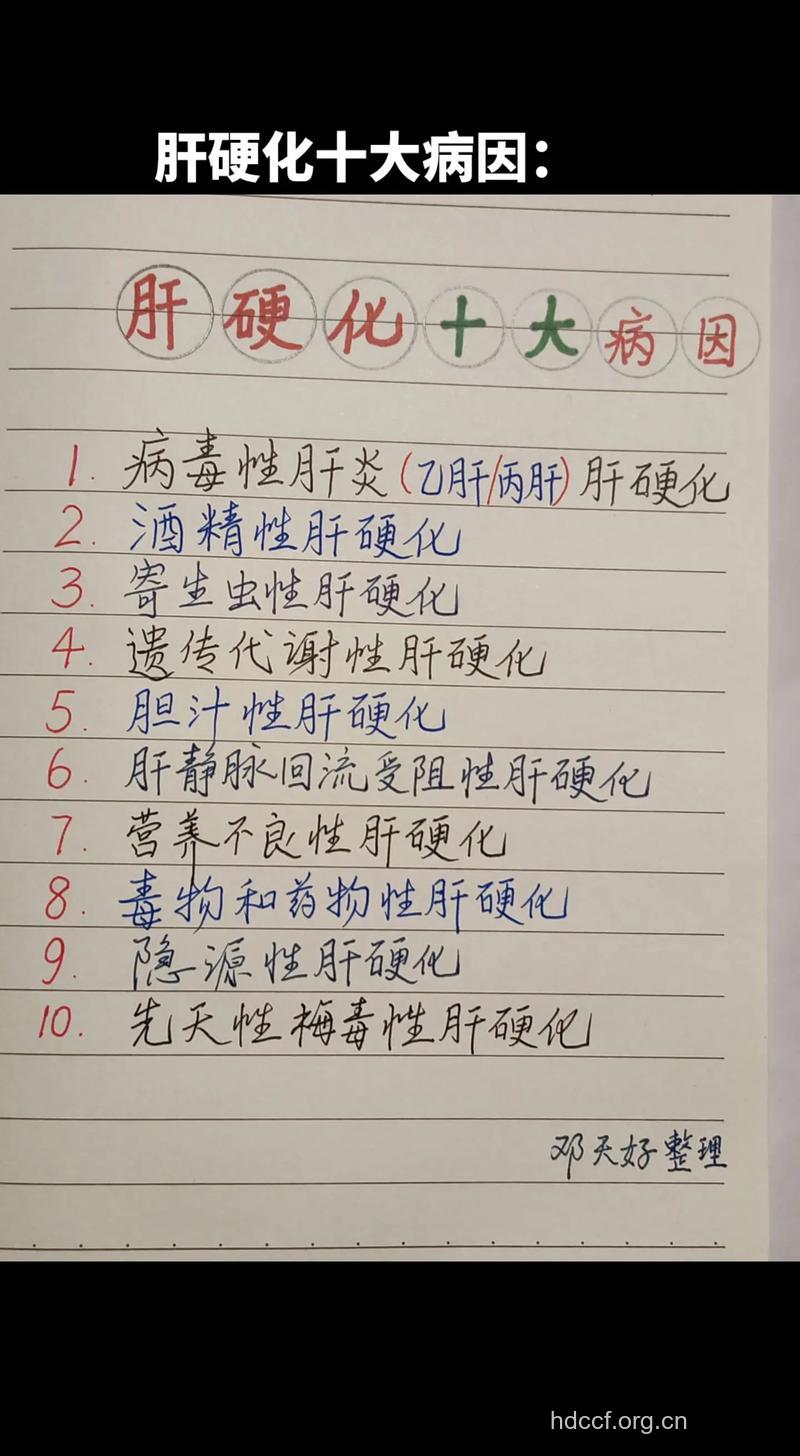 肝硬化十大病因：
肝硬化十大病因
1. 病毒性肝炎(乙肝/丙肝)肝硬化
2. 酒精性肝硬化
3. 寄生虫性肝硬化
4. 遗传代谢性肝硬化
5. 胆汁性肝硬化
6. 肝静脉回流受阻性肝硬化
7. 营养不良性肝硬化
8. 毒物和药物性肝硬化
9. 隐源性肝硬化
10. 先天性梅毒性肝硬化
邓天好整理
hdccf.org.cn